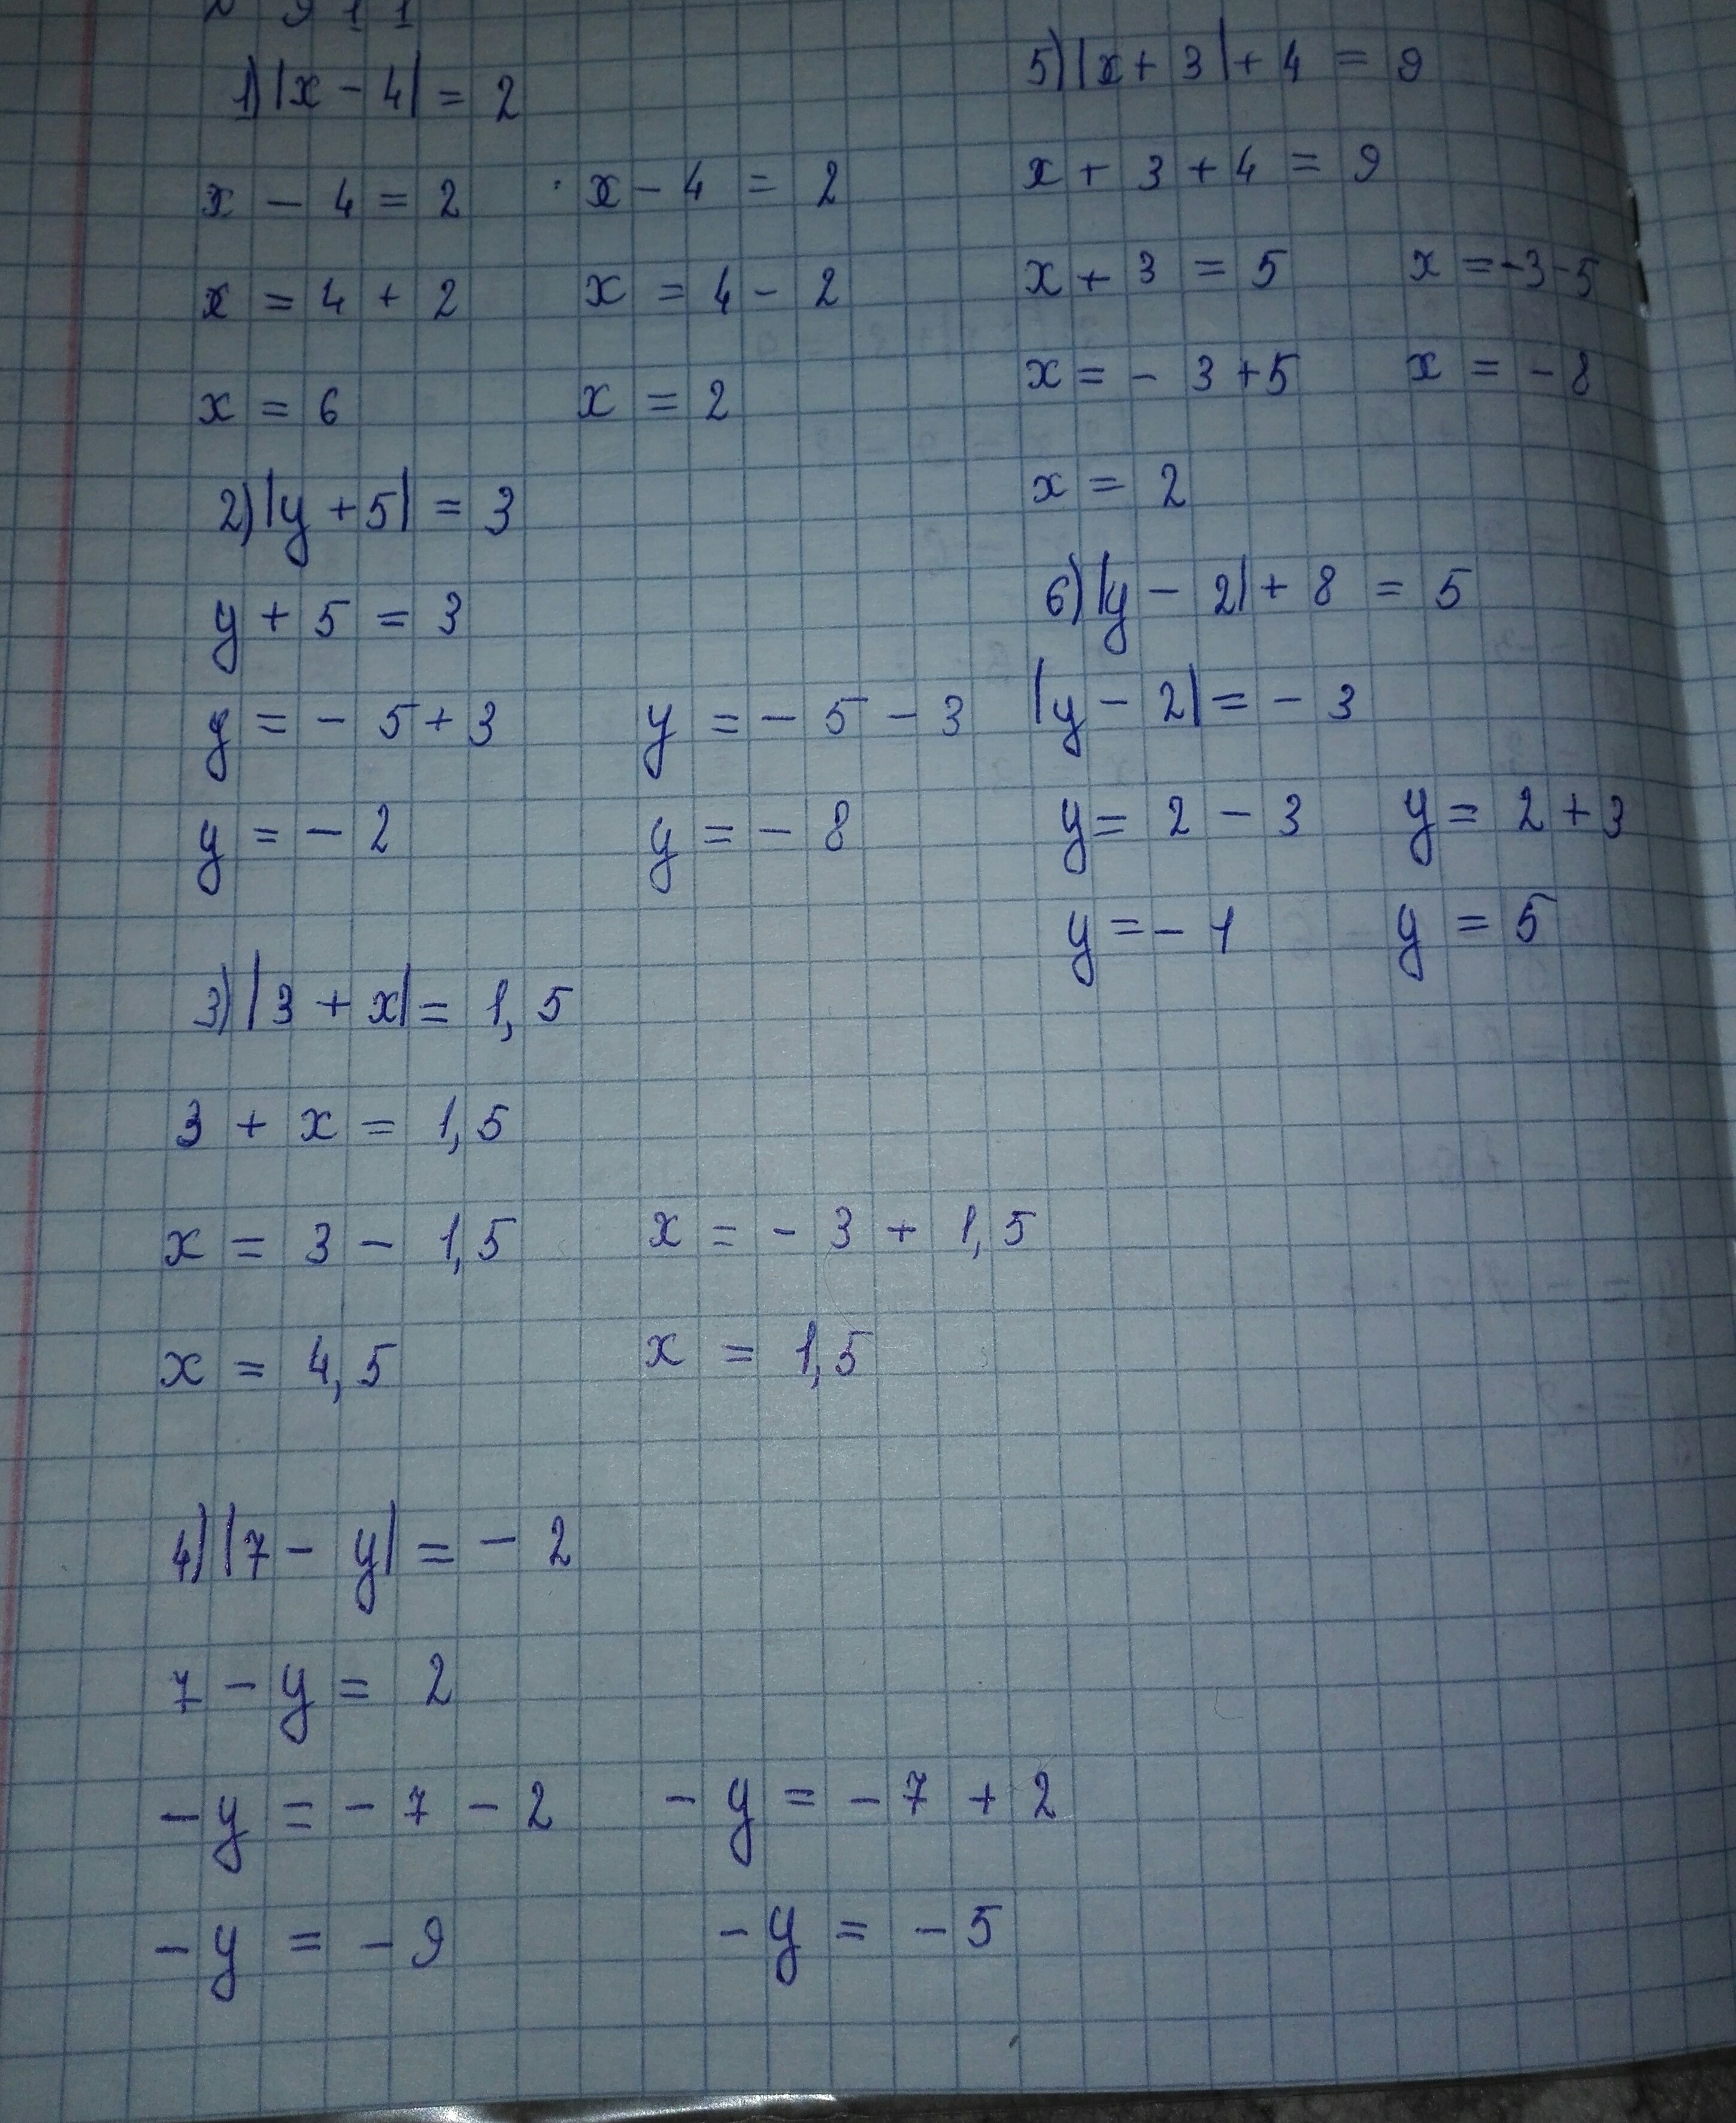 1) |x - 4| = 2
x - 4 = 2 x - 4 = 2
x = 4 + 2 x = 4 - 2
x = 6 x = 2
2) |y + 5| = 3
y + 5 = 3
y = - 5 + 3 y = - 5 - 3
y = - 2 y = - 8
3) |3 + x| = 1,5
3 + x = 1,5
x = 3 - 1,5 x = - 3 + 1,5
x = 4,5 x = 1,5
4) |7 - y| = - 2
7 - y = 2
- y = - 7 - 2 - y = - 7 + 2
- y = - 9 - y = - 5
5) |x + 3| + 4 = 9
x + 3 + 4 = 9
x + 3 = 5 x = -3-5
x = - 3 + 5 x = - 8
x = 2
6) |y - 2| + 8 = 5
|y - 2| = - 3
y = 2 - 3 y = 2 + 3
y = - 1 y = 5